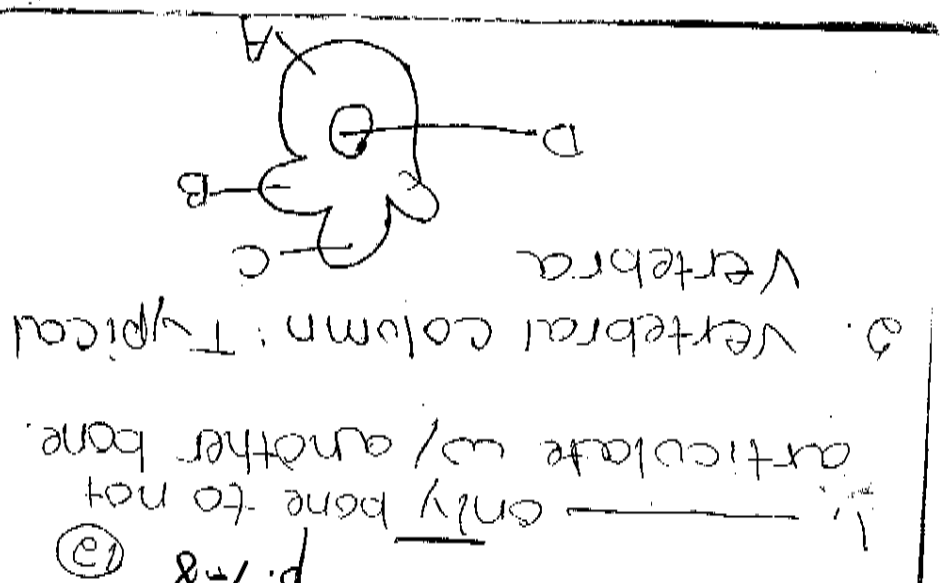 p. 7-8 (12)
1. ——— only bone to not
articulate w/ another bone.
2. Vertebral column: Typical
Vertebra
C
B
D
A